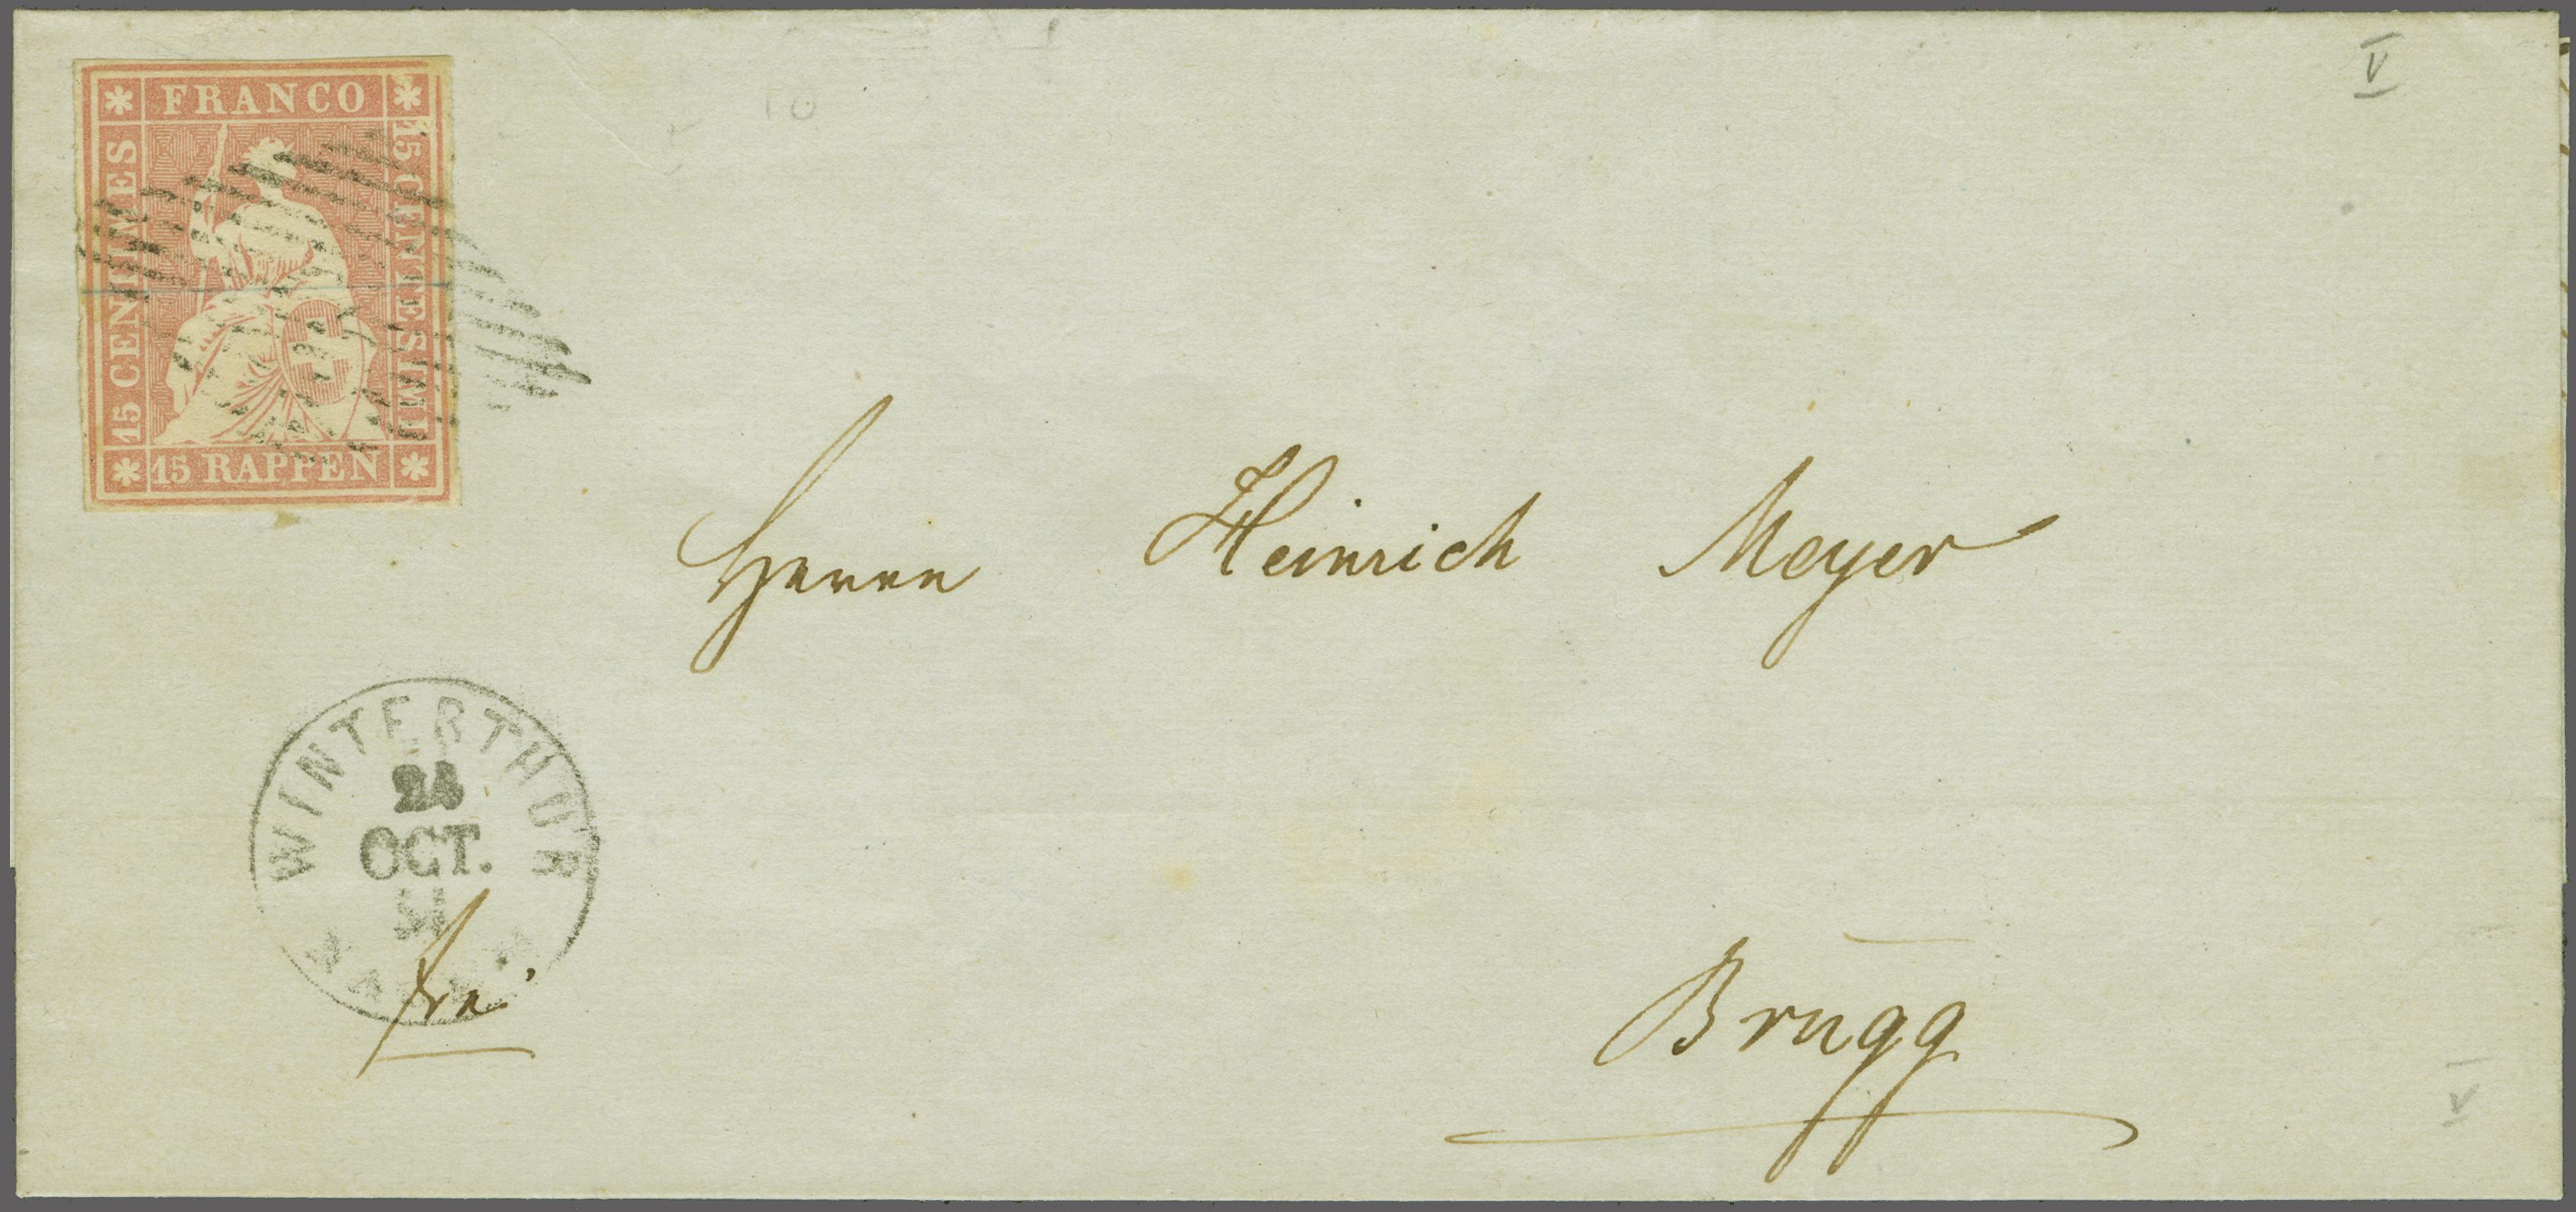 FRANCO
15 CENTIMES
15 CENTESIMI
15 RAPPEN
V
Herrn Heinrich Meyer
WINTERTHUR
24
OCT.
frei
Brugg
V